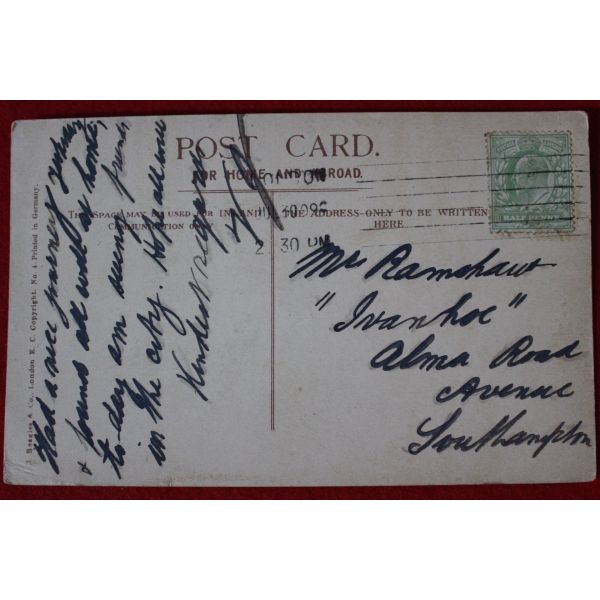 POST CARD.
FOR HOME AND ABROAD.
THIS SPACE MAY BE USED FOR INLAND COMMUNICATION ONLY
THE ADDRESS ONLY TO BE WRITTEN HERE
LONDON
30 09
2 30 PM
HALF PENNY
Had a nice journey yesterday
& found all well at home,
to-day am seeing friends
in the city. Hope all well
Kindest regards
Mrs Ramshaw
"Ivanhoe"
Alma Road
Avenue
Southampton
J Beagles & Co., London E. C. Copyright. No. 4. Printed in Germany.